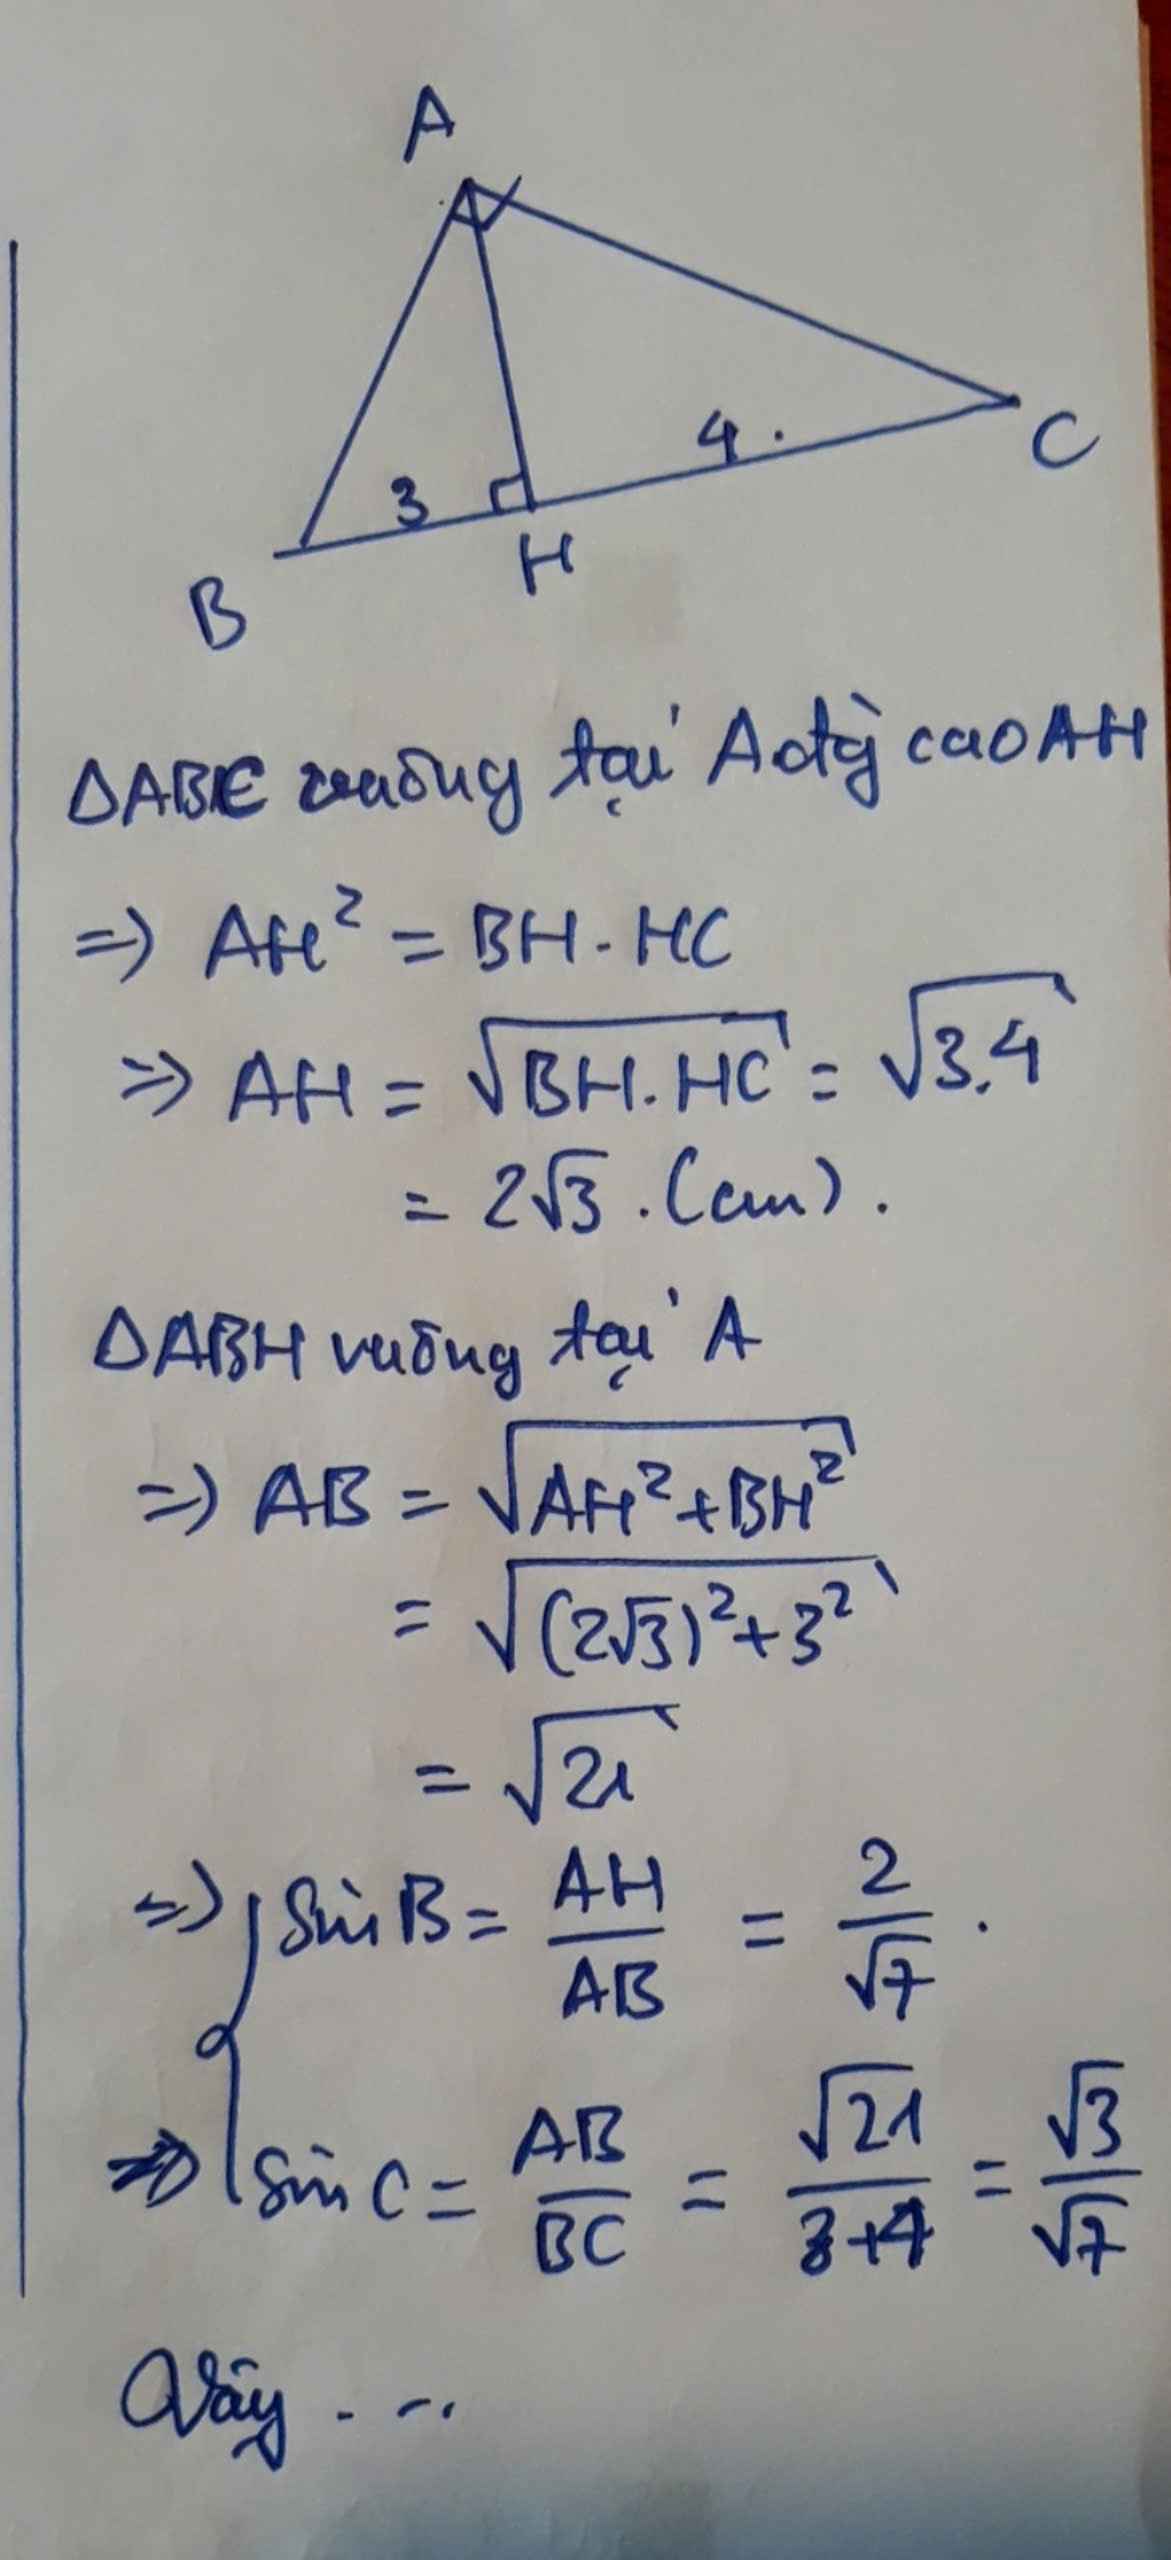 A
3
4.
C
B
H
ΔABC vuông tại A đg cao AH
=> AH² = BH.HC
=> AH = √(BH.HC) = √(3.4)
= 2√3.(cm).
ΔABH vuông tại A
=> AB = √(AH²+BH²)
= √((2√3)²+3²)
= √21
=> { sin B = AH/AB = 2/√7.
=> sin C = AB/BC = √21/(3+4) = √3/√7
Vậy . ...